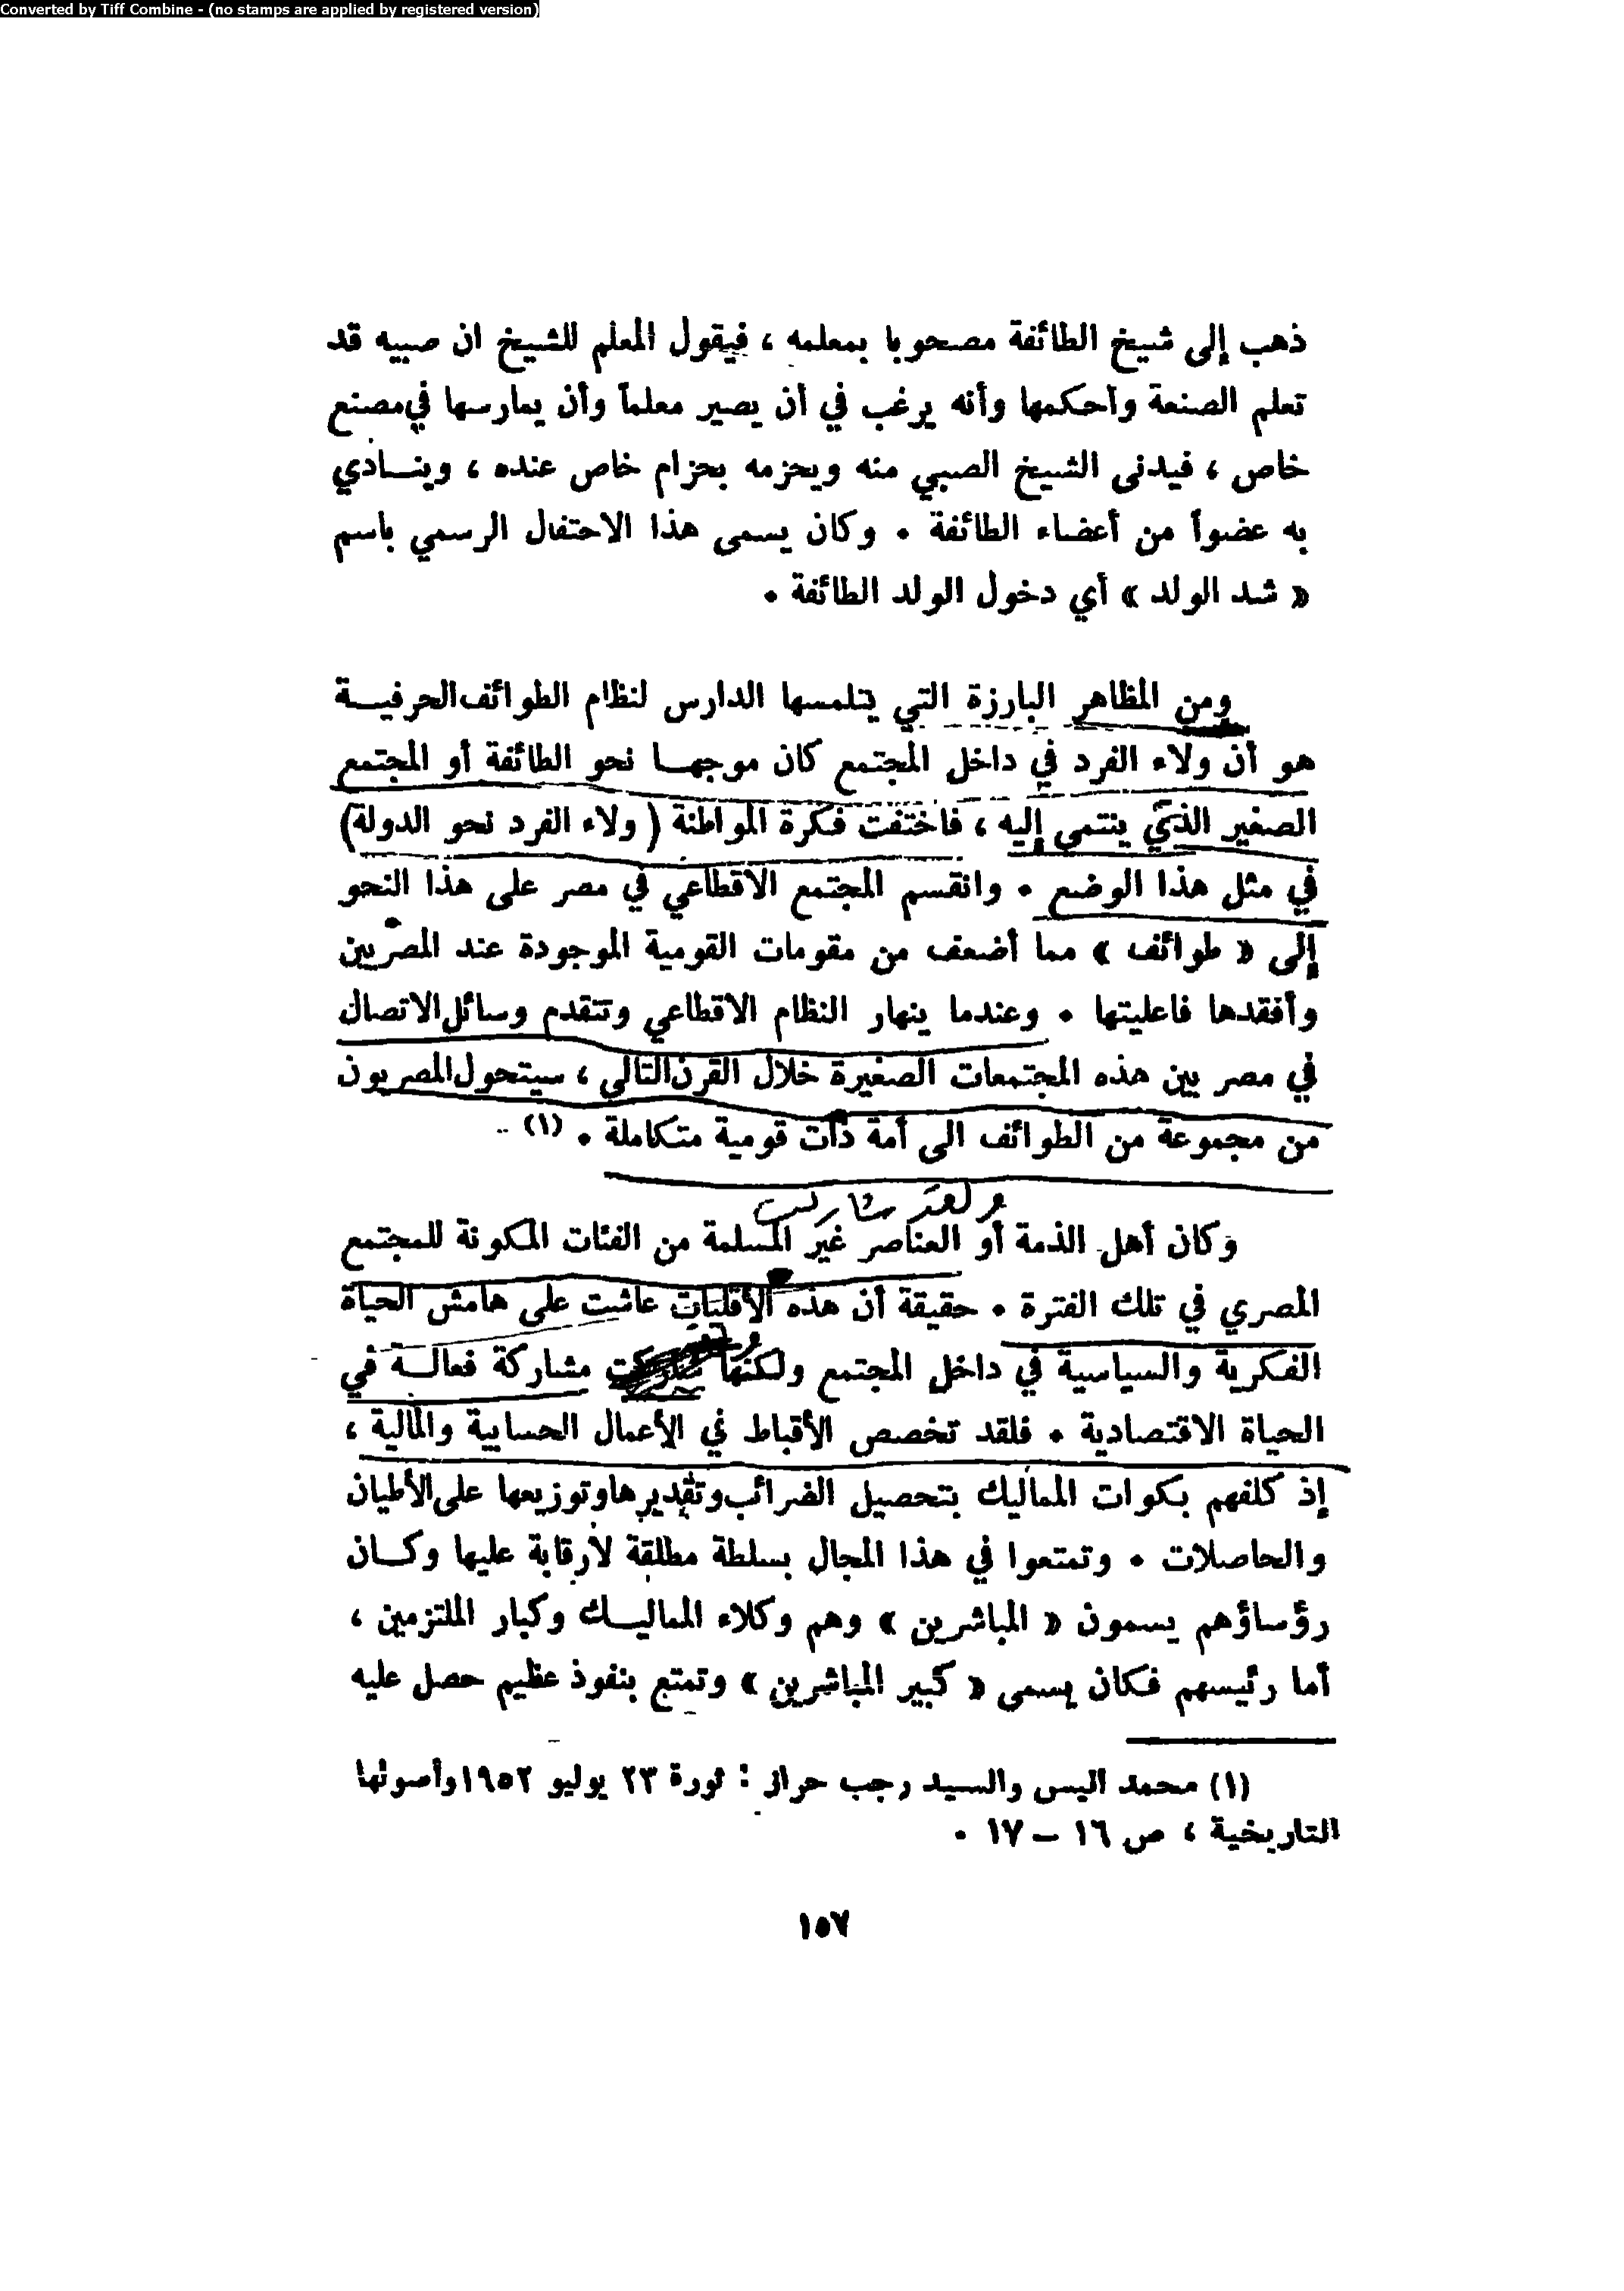 Converted by Tiff Combine - (no stamps are applied by registered version)
ذهب إلى شيخ الطائفة مصحوبا بمعلمه ، فيقول المعلم للشيخ ان صبيه قد
تعلم الصنعة وأحكمها وأنه يرغب في أن يصير معلماً وأن يمارسها في مصنع
خاص ، فيدنى الشيخ الصبي منه ويحزمه بحزام خاص عنده ، وينـادي
به عضواً من أعضاء الطائفة . وكان يسمى هذا الاحتفال الرسمي باسم
« شد الولد » أي دخول الولد الطائفة .
ومن المظاهر البارزة التي يتلمسها الدارس لنظام الطوائف الحرفيـة
هو أن ولاء الفرد في داخل المجتمع كان موجهـا نحو الطائفة أو المجتمع
الصغير الذي ينتمى إليه ، فاختفت فكرة المواطنة ( ولاء الفرد نحو الدولة)
في مثل هذا الوضع . وانقسم المجتمع الاقطاعي في مصر على هذا النحو
إلى « طوائف » مما أضعف من مقومات القومية الموجودة عند المصريين
وأفقدها فاعليتها . وعندما ينهار النظام الاقطاعي وتتقدم وسائل الاتصال
في مصر بين هذه المجتمعات الصغيرة خلال القرن التالي ، سيتحول المصريون
من مجموعة من الطوائف الى أمة ذات قومية متكاملة . (١)
ولقد شاركت
وكان أهل الذمة أو العناصر غير المسلمة من الفئات المكونة للمجتمع
المصري في تلك الفترة . حقيقة أن هذه الأقليات عاشت على هامش الحياة
الفكرية والسياسية في داخل المجتمع ولكنها مشاركة فعالـة في
الحياة الاقتصادية . فلقد تخصص الأقباط في الأعمال الحسابية والمالية ،
إذ كلفهم بكوات المماليك بتحصيل الضرائب وتقديرها وتوزيعها على الأطيان
والحاصلات . وتمتعوا في هذا المجال بسلطة مطلقة لارقابة عليها وكـان
رؤساؤهم يسمون « المباشرين » وهم وكلاء المماليـك وكبار الملتزمين ،
أما رئيسهم فكان يسمى « كبير المباشرين » وتمتع بنفوذ عظيم حصل عليه
(١) محمد أنيس والسيد رجب حراز : ثورة ٢٣ يوليو ١٩٥٢ وأصولها
التاريخية ، ص ١٦ – ١٧ .
١٥٧